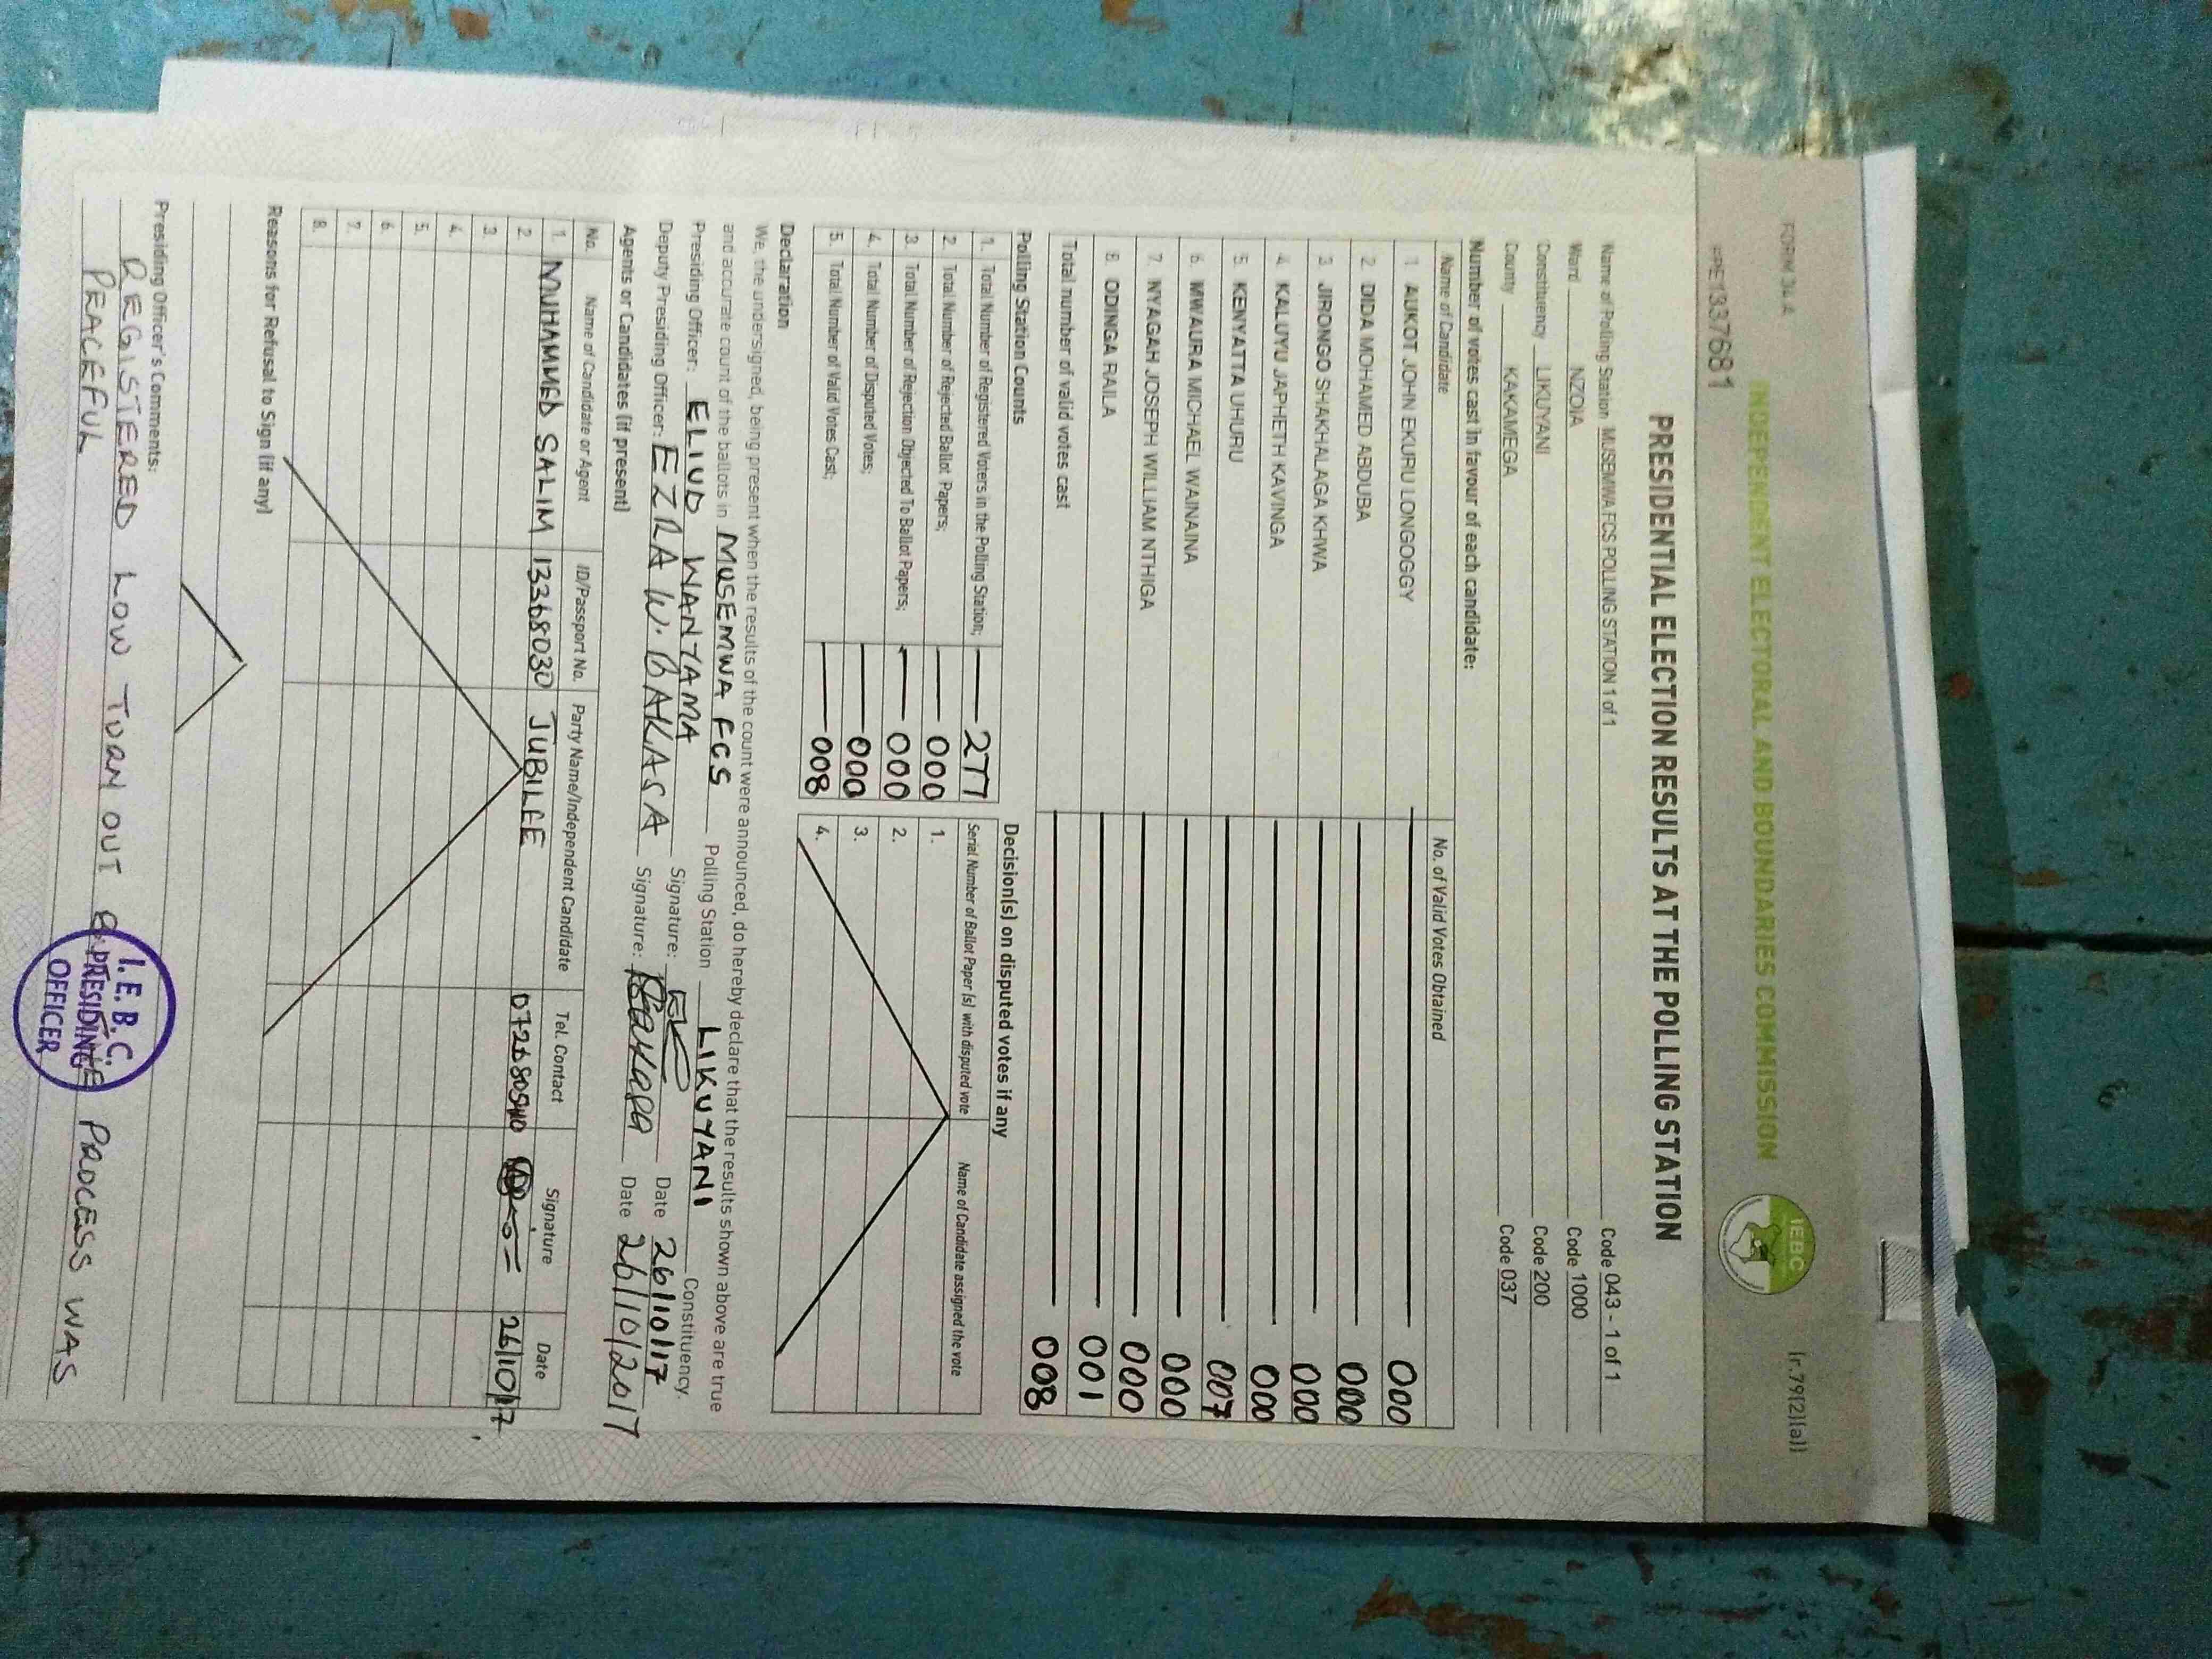 FORM 34A
(r.79(2)(a))
PE1337681
INDEPENDENT ELECTORAL AND BOUNDARIES COMMISSION
IEBC
PRESIDENTIAL ELECTION RESULTS AT THE POLLING STATION
Name of Polling Station MUSEMWA FCS POLLING STATION 1 of 1 Code 043 - 1 of 1
Ward NZOIA Code 1000
Constituency LIKUYANI Code 200
County KAKAMEGA Code 037
Number of votes cast in favour of each candidate:
Name of Candidate No. of Valid Votes Obtained
1. AUKOT JOHN EKURU LONGOGGY 000
2. DIDA MOHAMED ABDUBA 000
3. JIRONGO SHAKHALAGA KHWA 000
4. KALUYU JAPHETH KAVINGA 000
5. KENYATTA UHURU 007
6. MWAURA MICHAEL WAINAINA 000
7. NYAGAH JOSEPH WILLIAM NTHIGA 000
8. ODINGA RAILA 001
Total number of valid votes cast 008
Polling Station Counts
1. Total Number of Registered Voters in the Polling Station; 277
2. Total Number of Rejected Ballot Papers; 000
3. Total Number of Rejection Objected To Ballot Papers; 000
4. Total Number of Disputed Votes; 000
5. Total Number of Valid Votes Cast; 008
Decision(s) on disputed votes if any
Serial Number of Ballot Paper (s) with disputed vote Name of Candidate assigned the vote
1.
2.
3.
4.
Declaration
We, the undersigned, being present when the results of the count were announced, do hereby declare that the results shown above are true
and accurate count of the ballots in MUSEMWA FCS Polling Station LIKUYANI Constituency.
Presiding Officer: ELIUD WANYAMA Signature: Date 26/10/17
Deputy Presiding Officer: EZRA W. BAKASA Signature: Date 26/10/2017
Agents or Candidates (if present)
No. Name of Candidate or Agent ID/Passport No. Party Name/Independent Candidate Tel. Contact Signature Date
1. MUHAMMED SALIM 13368030 JUBILEE 26/10/17
2.
3.
4.
5.
6.
7.
8.
Reasons for Refusal to Sign (if any)
Presiding Officer's Comments:
REGISTERED LOW TURN OUT & THE PROCESS WAS
PEACEFUL
I.E.B.C.
PRESIDING
OFFICER